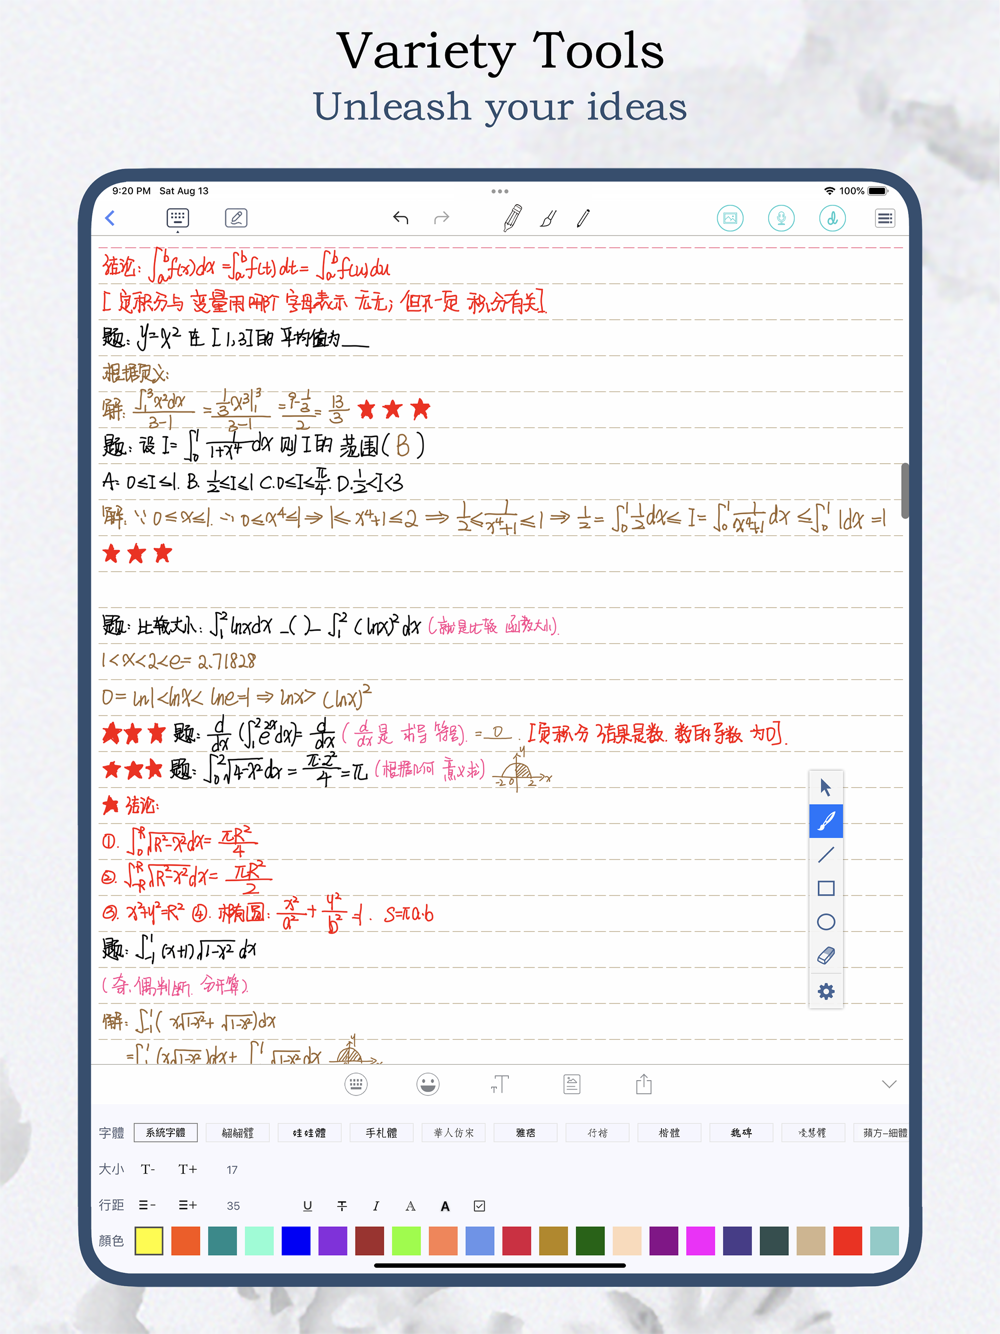 Variety Tools
Unleash your ideas
9:20 PM Sat Aug 13
100%
结论: ∫ₐᵇf(x)dx=∫ₐᵇf(t)dt=∫ₐᵇf(u)du
[定积分与 变量用哪个字母表示 无关; 但不一定 积分有关]
题: y=x² 在 [1,3]的 平均值为___
根据定义:
解: ∫₁³x²dx/3-1 = ⅓x³|₁³/3-1 = 9-⅓/2 = 13/3 ★★★
题: 设 I=∫₀¹ 1/1+x⁴ dx 则 I 的 范围( B )
A. 0≤I≤1. B. ½≤I≤1 C.0≤I≤π/4. D.½<I<3
解: ∵ 0≤x≤1. ∴ 0≤x⁴≤1 ⇒ 1≤x⁴+1≤2 ⇒ ½≤1/x⁴+1≤1 ⇒ ½=∫₀¹½dx≤ I=∫₀¹1/x⁴+1 dx ≤∫₀¹ 1dx =1
★★★
题: 比较大小: ∫₁²lnxdx _( )_ ∫₁²(lnx)²dx (就是比较 函数大小).
1<x<2<e=2.71828
0=ln1<lnx< lne=1 ⇒ lnx> (lnx)²
★★★ 题: d/dx (∫₁²e²ˣdx)= d/dx (d/dx是 求导 符号). = 0 . [定积分 结果是数. 数的导数 为0].
★★★ 题: ∫₀²√4-x² dx = π·2²/4 =π (根据几何 意义求) -2 0 2 x y
★ 结论:
①. ∫₀ᴿ√R²-x² dx= πR²/4
②. ∫₋ᴿᴿ√R²-x² dx= πR²/2
③. x²+y²=R² ④. 椭圆: x²/a² + y²/b² =1. S=πa·b
题: ∫₋₁¹ (x+1)√1-x² dx
(奇.偶判断. 分开算).
解: ∫₋₁¹( x√1-x² + √1-x²)dx
=∫₋₁¹(x√1-x²)dx+ ∫¹ √1-x² dx y
字體 系統字體 翩翩體 娃娃體 手札體 華人仿宋 雅痞 行楷 楷體 魏碑 蘋方-細體
大小 T- T+ 17
行距 - + 35 U T I A A
顏色